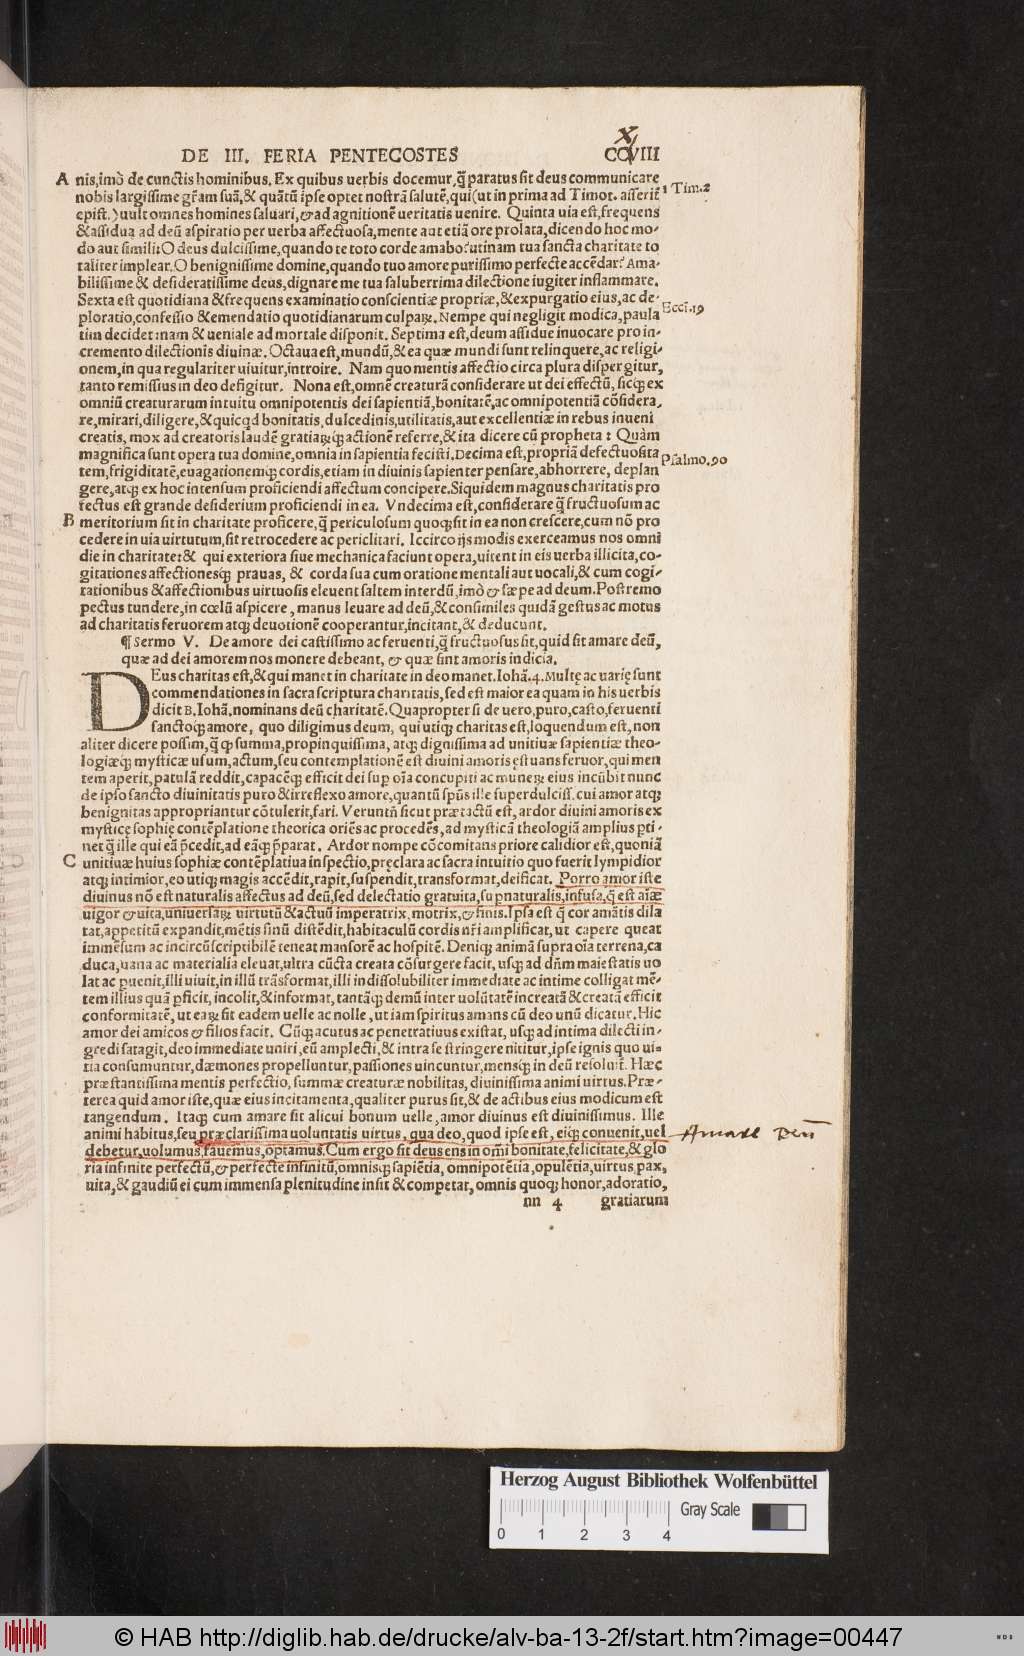 X
DE III. FERIA PENTECOSTES CCVIII
A nis, imò de cunctis hominibus. Ex quibus uerbis docemur, q̃ paratus sit deus communicare
nobis largissime gr̃am suã, & quãtũ ipse optet nostrã salutẽ, qui (ut in prima ad Timot. asserit 1 Tim. 2
epist.) uult omnes homines saluari, & ad agnitionẽ ueritatis uenire. Quinta uia est, frequens
& assidua ad deũ aspiratio per uerba affectuosa, mente aut etiã ore prolata, dicendo hoc mo-
do aut simili: O deus dulcissime, quando te toto corde amabo? utinam tua sancta charitate to
taliter implear. O benignissime domine, quando tuo amore purissimo perfecte accẽdar? Ama-
bilissime & desideratissime deus, dignare me tua saluberrima dilectione iugiter inflammare.
Sexta est quotidiana & frequens examinatio conscientiæ propriæ, & expurgatio eius, ac de-
ploratio, confessio & emendatio quotidianarum culpaꝝ. Nempe qui negligit modica, paula Eccl. 19
tim decidet: nam & ueniale ad mortale disponit. Septima est, deum assidue inuocare pro in-
cremento dilectionis diuinæ. Octaua est, mundũ, & ea quæ mundi sunt relinquere, ac religi-
onem, in qua regulariter uiuitur, introire. Nam quo mentis affectio circa plura dispergitur,
tanto remissius in deo defigitur. Nona est, omnẽ creaturã considerare ut dei effectũ, sicq; ex
omniũ creaturarum intuitu omnipotentis dei sapientiã, bonitatẽ, ac omnipotentiã cõsidera-
re, mirari, diligere, & quicqd bonitatis, dulcedinis, utilitatis, aut excellentiæ in rebus inueni
creatis, mox ad creatoris laudẽ gratiaꝝq; actionẽ referre, & ita dicere cũ propheta: Quàm
magnifica sunt opera tua domine, omnia in sapientia fecisti. Decima est, propriã defectuosita Psalmo. 90
tem, frigiditatẽ, euagationemq; cordis, etiam in diuinis sapienter pensare, abhorrere, deplan
gere, atq; ex hoc intensum proficiendi affectum concipere. Siquidem magnus charitatis pro
fectus est grande desiderium proficiendi in ea. Vndecima est, considerare q̃ fructuosum ac
B meritorium sit in charitate proficere, q̃ periculosum quoq; sit in ea non crescere, cum nõ pro
cedere in uia uirtutum, sit retrocedere ac periclitari. Iccirco ijs modis exerceamus nos omni
die in charitate: & qui exteriora siue mechanica faciunt opera, uitent in eis uerba illicita, co-
gitationes affectionesq; prauas, & corda sua cum oratione mentali aut uocali, & cum cogi-
tationibus & affectionibus uirtuosis eleuent saltem interdũ, imò & sæpe ad deum. Postremo
pectus tundere, in cœlũ aspicere, manus leuare ad deũ, & consimiles quidã gestus ac motus
ad charitatis feruorem atq; deuotionẽ cooperantur, incitant, & deducunt.
¶ Sermo V. De amore dei castissimo ac feruenti, q̃ fructuosus sit, quid sit amare deũ,
quæ ad dei amorem nos monere debeant, & quæ sint amoris indicia.
DEus charitas est, & qui manet in charitate in deo manet. Iohã. 4. Multę ac uarię sunt
commendationes in sacra scriptura charitatis, sed est maior ea quam in his uerbis
dicit B. Iohã. nominans deũ charitatẽ. Quapropter si de uero, puro, casto, feruenti
sanctoq; amore, quo diligimus deum, qui utiq; charitas est, loquendum est, non
aliter dicere possim, q̃ q summa, propinquissima, atq; dignissima ad unitiuæ sapientiæ theo-
logiæq; mysticæ usum, actum, seu contemplationẽ est diuini amoris ęstuans feruor, qui men
tem aperit, patulã reddit, capacẽq; efficit dei sup oĩa concupiti ac muneꝝ eius incũbit nunc
de ipso sancto diuinitatis puro & irreflexo amore, quantũ spũs ille superdulciss. cui amor atq;
benignitas appropriantur cõtulerit, fari. Veruntñ sicut prætactũ est, ardor diuini amoris ex
mysticę sophię contẽplatione theorica oriẽs ac procedẽs, ad mysticã theologiã amplius pti-
net q̃ ille qui eã p̃cedit, ad eãq; p̃parat. Ardor nompe cõcomitans priore calidior est, quoniã
C unitiuæ huius sophiæ contẽplatiua inspectio, pręclara ac sacra intuitio quo fuerit lympidior
atq; intimior, eo utiq; magis accẽdit, rapit, suspendit, transformat, deificat. Porro amor iste
diuinus nõ est naturalis affectus ad deũ, sed delectatio gratuita, supnaturalis, infusa, q̃ est aĩæ
uigor & uita, uniuersaꝝ uirtutũ & actuũ imperatrix, motrix, & finis. Ipsa est q̃ cor amãtis dila
tat, appetitũ expandit, mẽtis sinũ distẽdit, habitaculũ cordis nr̃i amplificat, ut capere queat
immẽsum ac incircũscriptibilẽ teneat mansorẽ ac hospitẽ. Deniq; animã supra oĩa terrena, ca
duca, uana ac materialia eleuat, ultra cũcta creata cõsurgere facit, usq; ad dñm maiestatis uo
lat ac puenit, illi uiuit, in illũ trãsformat, illi indissolubiliter immediate ac intime colligat mẽ-
tem illius quã pficit, incolit, & informat, tantãq; demũ inter uolũtatẽ increatã & creatã efficit
conformitatẽ, ut eaꝝ sit eadem uelle ac nolle, ut iam spiritus amans cũ deo unũ dicatur. Hic
amor dei amicos & filios facit. Cũq; acutus ac penetratiuus existat, usq; ad intima dilecti in-
gredi satagit, deo immediate uniri, eũ amplecti, & intra se stringere nititur, ipse ignis quo ui-
tia consumuntur, dæmones propelluntur, passiones uincuntur, mensq; in deũ resoluit. Hæc
præstantissima mentis perfectio, summæ creaturæ nobilitas, diuinissima animi uirtus. Præ-
terea quid amor iste, quæ eius incitamenta, qualiter purus sit, & de actibus eius modicum est
tangendum. Itaq; cum amare sit alicui bonum uelle, amor diuinus est diuinissimus. Ille
animi habitus, seu præclarissima uoluntatis uirtus, qua deo, quod ipse est, eiq; conuenit, uel Amare Deũ
debetur, uolumus, fauemus, optamus. Cum ergo sit deus ens in om̃i bonitate, felicitate, & glo
ria infinite perfectũ, & perfecte infinitũ, omnisq; sapiẽtia, omnipotẽtia, opulẽtia, uirtus, pax,
uita, & gaudiũ ei cum immensa plenitudine insit & competat, omnis quoq; honor, adoratio,
nn 4 gratiarum
Herzog August Bibliothek Wolfenbüttel
0 1 2 3 4 Gray Scale
© HAB http://diglib.hab.de/drucke/alv-ba-13-2f/start.htm?image=00447